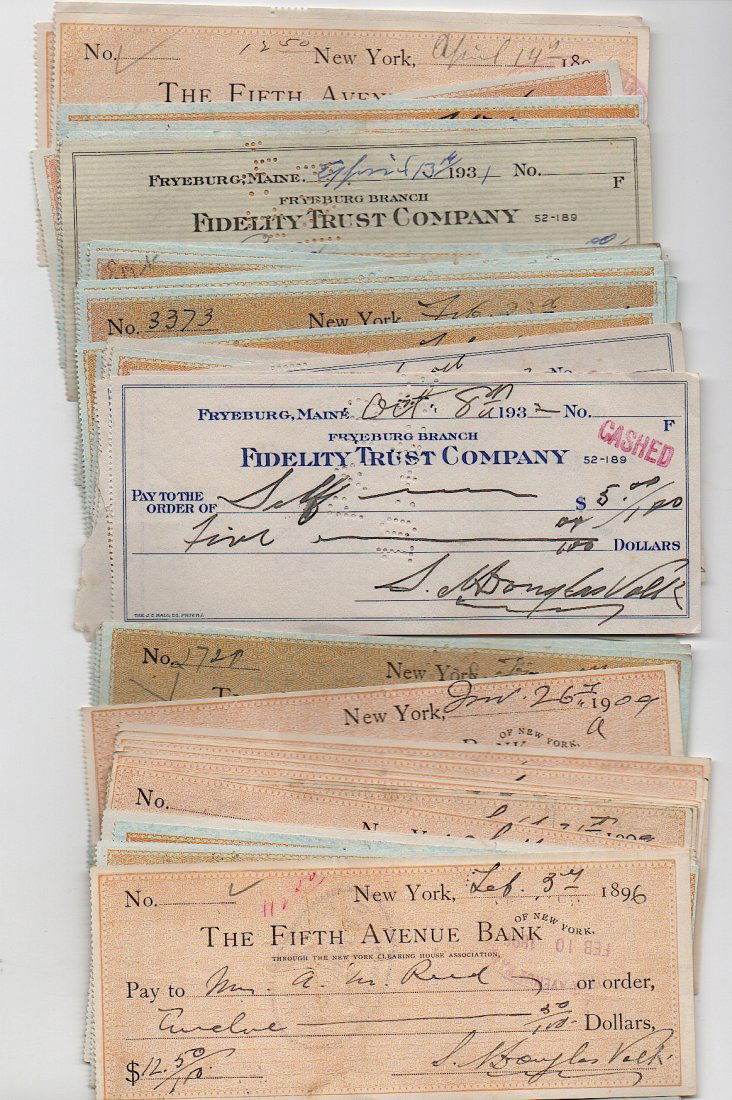 No. 1250 New York, April 14th 189
THE FIFTH AVENUE
FRYEBURG, MAINE. April 13th 1931 No.
F
FRYEBURG BRANCH
FIDELITY TRUST COMPANY 52-189
No. 3373 New York, Feb. 23d
No.
FRYEBURG, MAINE Oct. 8th 1932 No.
F
FRYEBURG BRANCH
CASHED
FIDELITY TRUST COMPANY 52-189
PAY TO THE
ORDER OF Self $ 5.00/100
Five 00/100 DOLLARS
S. A. Douglas Volk
No. 1728 New York
New York, 26th 1909
OF NEW YORK.
BANK
No.
New York
No. New York, Feb. 3rd 1896
OF NEW YORK.
THE FIFTH AVENUE BANK
FEB 10
THROUGH THE NEW YORK CLEARING HOUSE ASSOCIATION,
Pay to Mrs. A. M. Reed or order,
Twelve 50/100 Dollars,
$ 12.50/100 S. A. Douglas Volk.